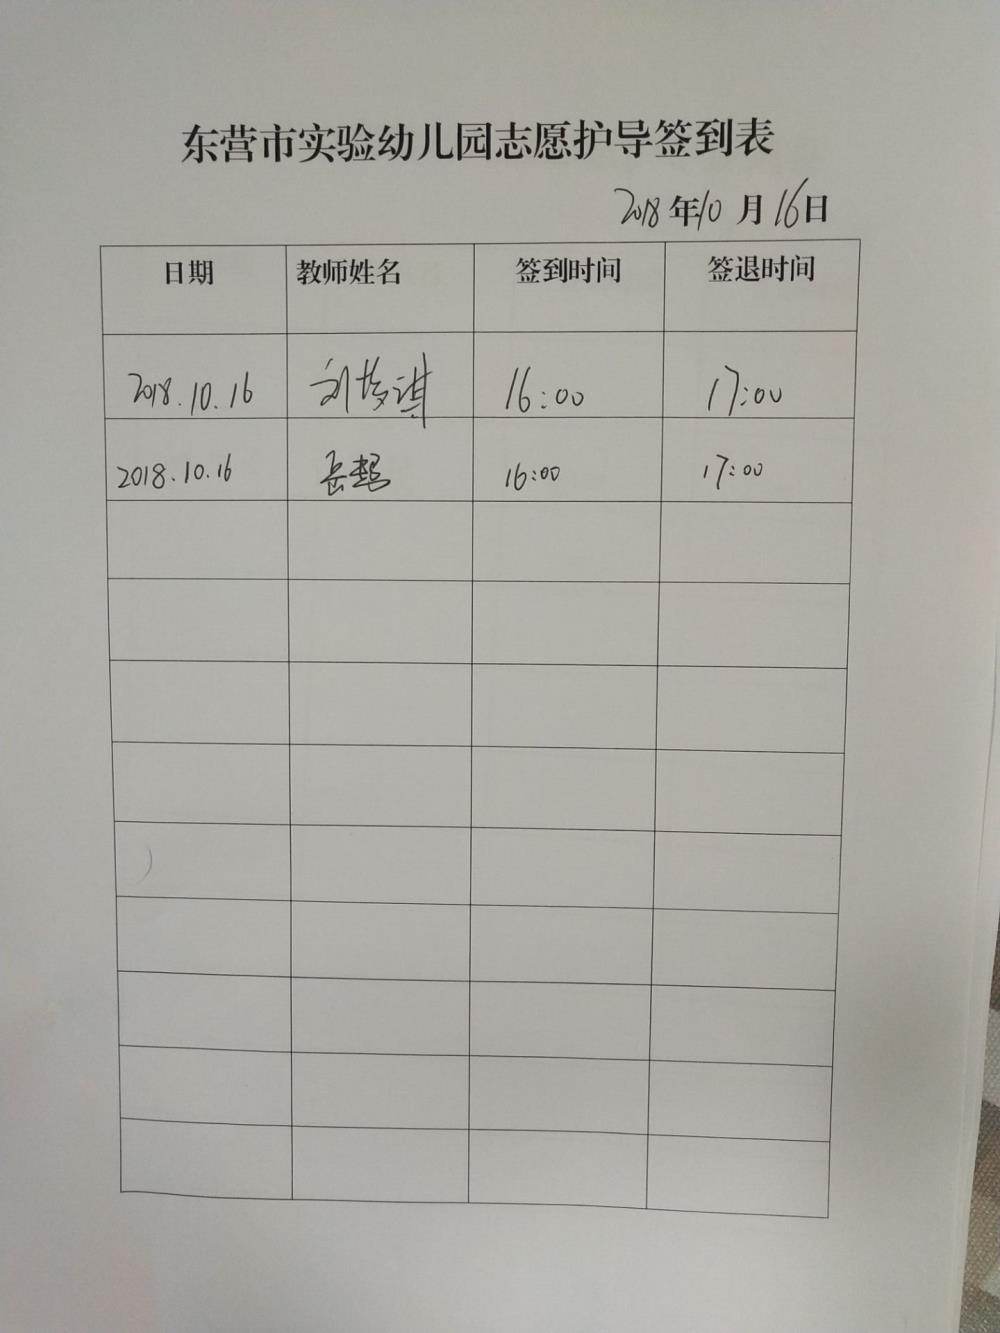 东营市实验幼儿园志愿护导签到表
2018年10月16日
日期 教师姓名 签到时间 签退时间
2018.10.16 刘梦淇 16:00 17:00
2018.10.16 岳 16:00 17:00